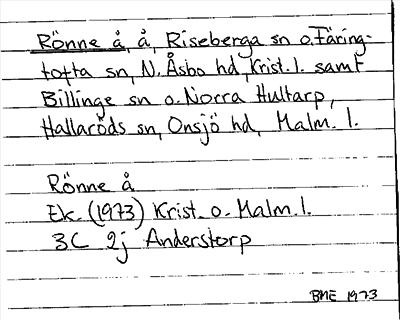 Rönne å, å, Riseberga sn o. Färing-
tofta sn, N. Åsbo hd, Krist. l. samt
Billinge sn o. Norra Hultarp,
Hallaröds sn, Onsjö hd, Malm. l.
Rönne å
Ek. (1973) Krist. o. Malm. l.
3C 2j Anderstorp
BME 1973